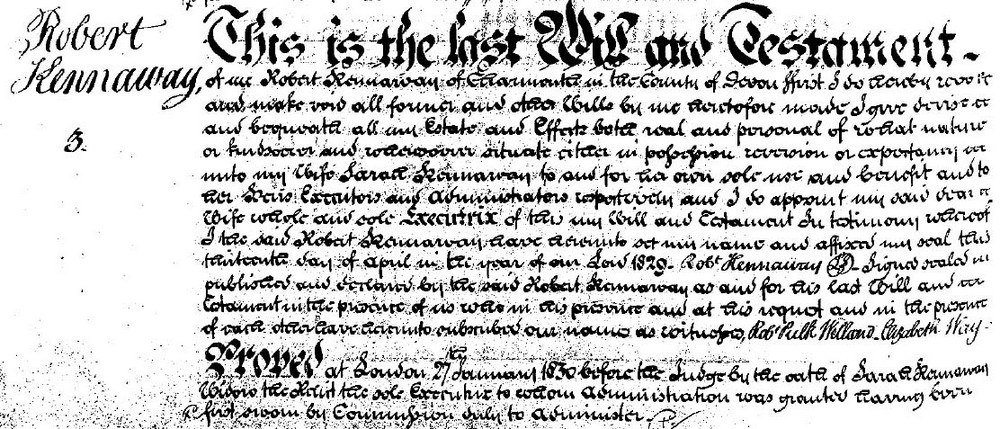 Robert
Kennaway,
3.
This is the last Will and Testament -
of me Robert Kennaway of Charmouth in the County of Devon ffirst I do hereby revoke
and make void all former and other Wills by me heretofore made I give devise
and bequeath all my Estate and Effects both real and personal of what nature
or kindsoever and wheresoever situate either in possession reversion or expectancy
unto my Wife Sarah Kennaway to and for her own sole use and benefit and to
her Heirs Executors and Administrators respectively and I do appoint my said dear
Wife whole and sole Executrix of this my Will and Testament In testimony whereof
I the said Robert Kennaway have hereunto set my name and affixed my seal this
thirteenth day of April in the year of our Lord 1829. Robt Kennaway Signed sealed
published and declared by the said Robert Kennaway as and for his last Will and
Testament in the presence of us who in his presence and at his request and in the presence
of each other have hereunto subscribed our names as Witnesses, Robt Pulk Welland - Elizabeth Way -
Proved at London 27th January 1830 before the Judge by the oath of Sarah Kennaway
Widow the Relict the sole Executrix to whom Administration was granted having been
first sworn by Commission duly to Administer.